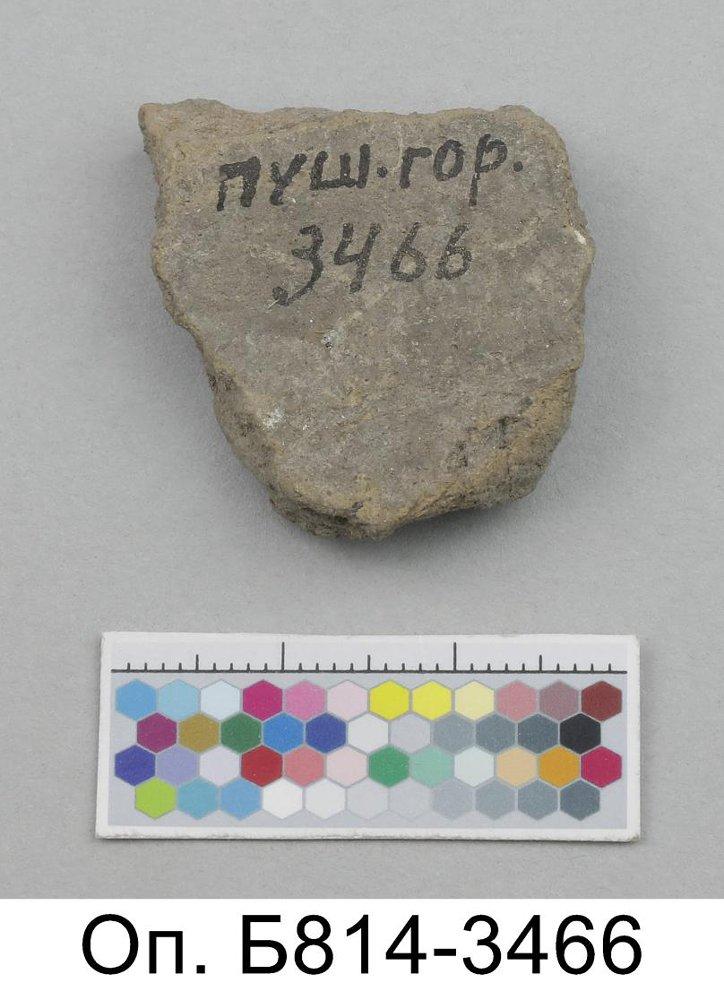 пуш.гор.
3466
Оп. Б814-3466